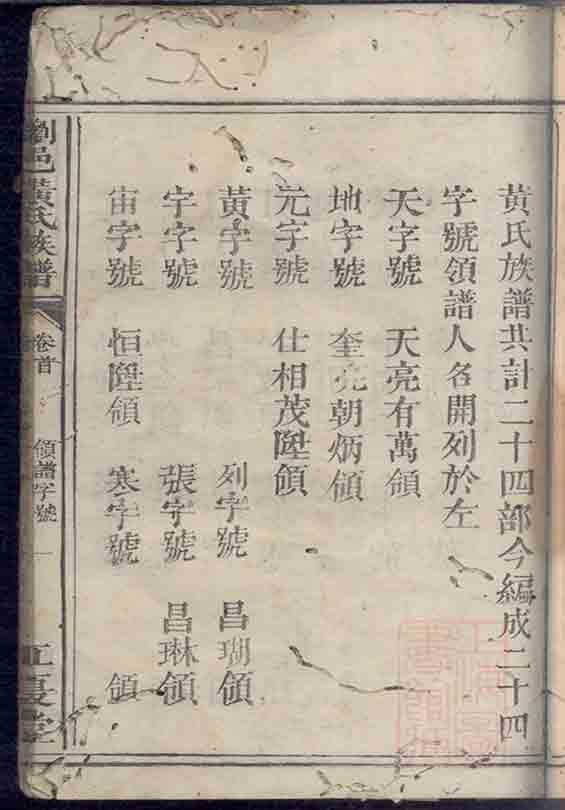 黃氏族譜共計二十四部今編成二十四
字號領譜人名開列於左
天字號 天亮有萬領
地字號 奎亮朝炳領
元字號 仕相茂陞領
黃字號 列字號 昌瑚領
宇字號 張字號 昌琳領
宙字號 恒陞領 寒字號 領
瀏邑黃氏族譜 卷首 領譜字號 一 江夏堂